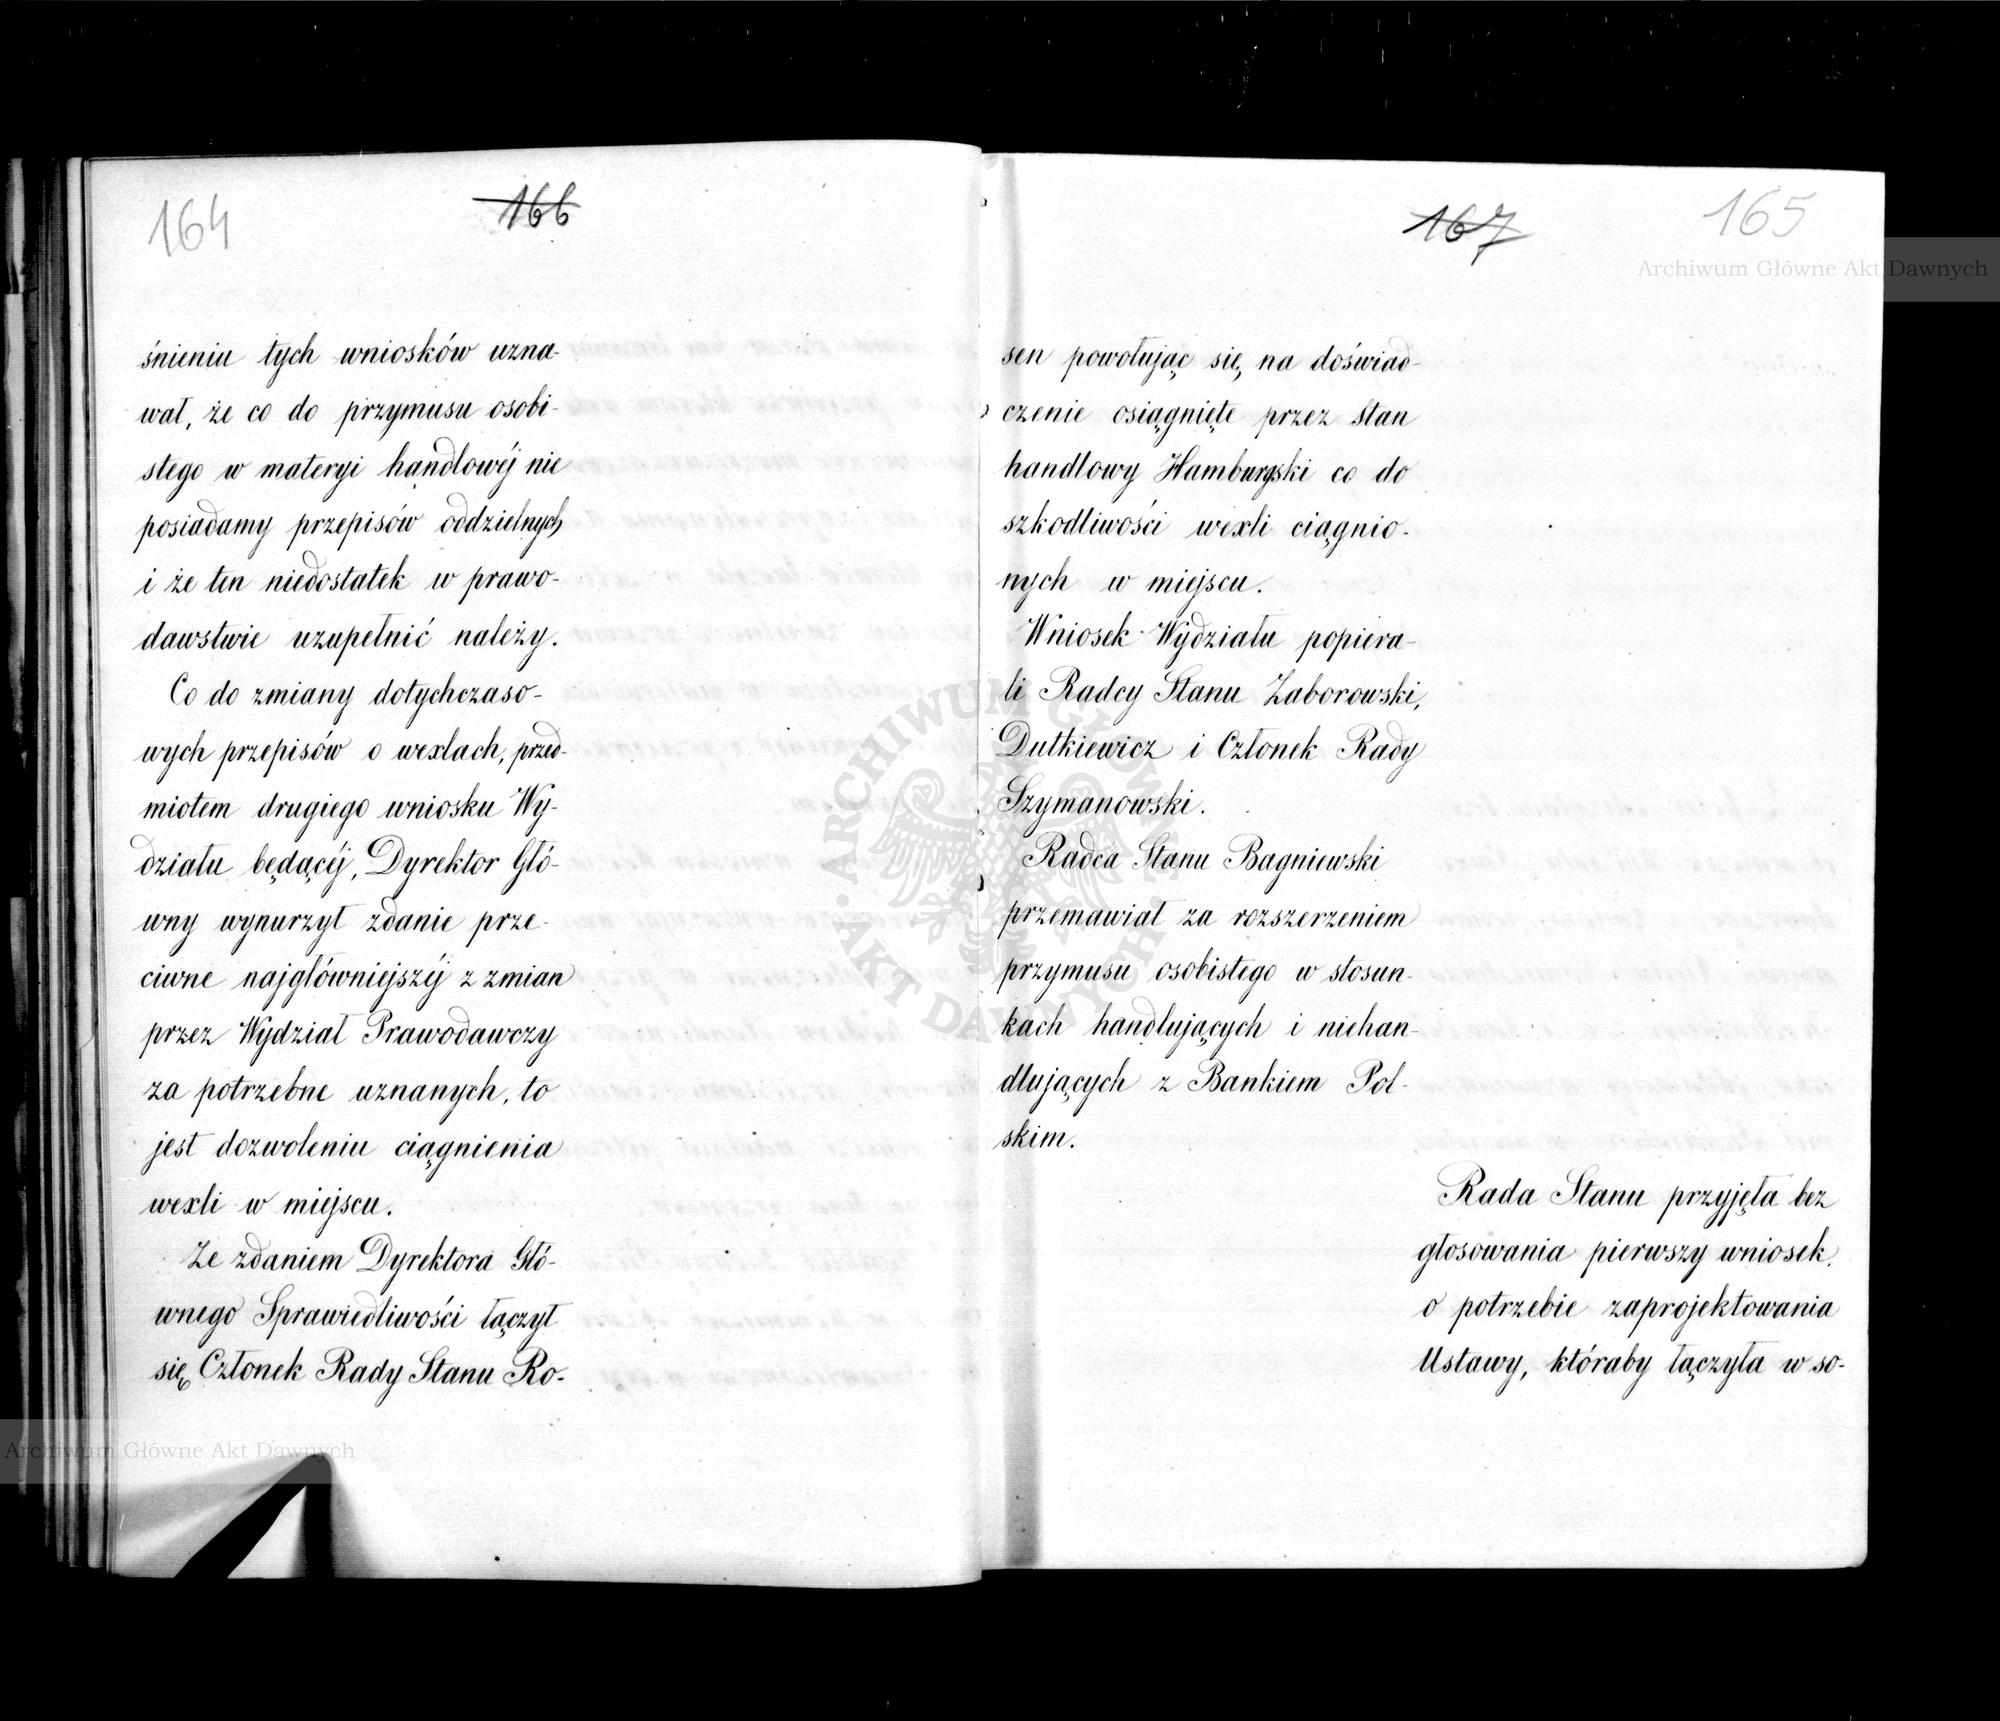 164
166
śnieniu tych wniosków uzna-
wał, że co do przymusu osobi-
stego w materyi handlowéj nie
posiadamy przepisów oddzielnych
i że ten niedostatek w prawo-
dawstwie uzupełnić należy.
Co do zmiany dotychczaso-
wych przepisów o wexlach, przed-
miotem drugiego wniosku Wy-
działu będącéj, Dyrektor Głó-
wny wynurzył zdanie prze-
ciwne najgłówniejszéj z zmian
przez Wydział Prawodawczy
za potrzebne uznanych, to
jest dozwoleniu ciągnienia
wexli w miejscu.
Ze zdaniem Dyrektora Głó-
wnego Sprawiedliwości łączył
się Członek Rady Stanu Ro-
167
165
Archiwum Główne Akt Dawnych
sen powołując się na doświad-
czenie osiągnięte przez stan
handlowy Hamburgski co do
szkodliwości wexli ciągnio-
nych w miejscu.
Wniosek Wydziału popiera-
li Radcy Stanu Zaborowski,
Dutkiewicz i Członek Rady
Szymanowski.
Radca Stanu Bagniewski
przemawiał za rozszerzeniem
przymusu osobistego w stosun-
kach handlujących i niehan-
dlujących z Bankiem Pol-
skim.
Rada Stanu przyjęła bez
głosowania pierwszy wniosek,
o potrzebie zaprojektowania
Ustawy, któraby łączyła w so-
ARCHIWUM GŁÓWNE AKT DAWNYCH
Archiwum Główne Akt Dawnych